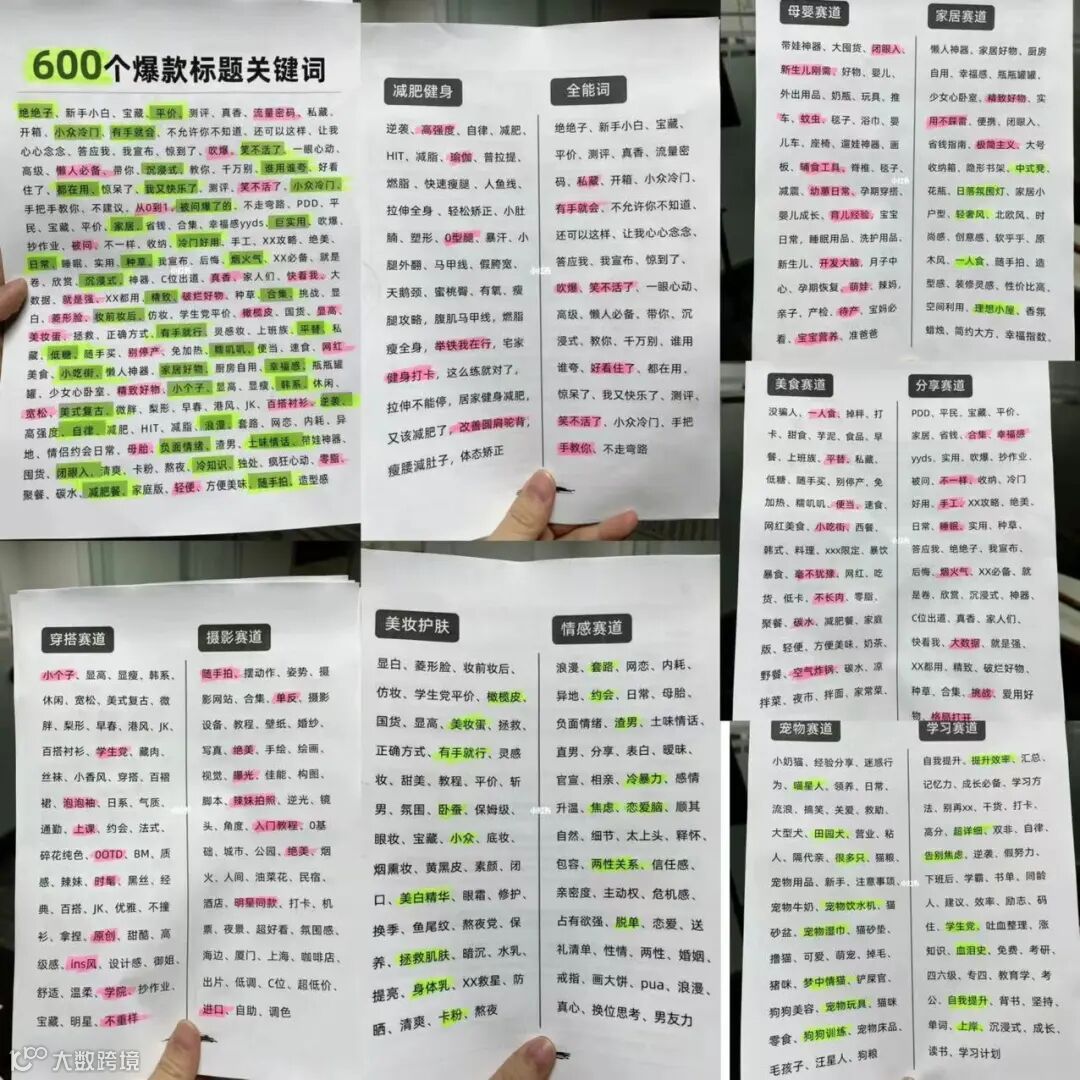 600个爆款标题关键词
绝绝子、新手小白、宝藏、平价、测评、真香、流量密码、私藏、
开箱、小众冷门、有手就会、不允许你不知道、还可以这样、让我
心心念念、答应我、我宣布、惊到了、吹爆、笑不活了、一眼心动、
高级、懒人必备、带你、沉浸式、教你、千万别、谁用谁夸、好看
住了、都在用、惊呆了、我又快乐了、测评、笑不活了、小众冷门、
手把手教你、不建议、从0到1、被问爆了的、不走弯路、PDD、平
民、宝藏、平价、家居、省钱、合集、幸福感yyds、巨实用、吹爆、
抄作业、被问、不一样、收纳、冷门好用、手工、XX攻略、绝美、
日常、睡眠、实用、种草、我宣布、后悔、烟火气、XX必备、就是
卷、欣赏、沉浸式、神器、C位出道、真香、家人们、快看我、大
数据、就是强、XX都用、精致、破烂好物、种草、合集、挑战、显
白、菱形脸、妆前妆后、仿妆、学生党平价、橄榄皮、国货、显高、
美妆蛋、拯救、正确方式、有手就行、灵感妆、上班族、平替、私
藏、低糖、随手买、别停产、免加热、糯叽叽、便当、速食、网红
美食、小吃街、懒人神器、家居好物、厨房自用、幸福感、瓶瓶罐
罐、少女心卧室、精致好物、小个子、显高、显瘦、韩系、休闲、
宽松、美式复古、微胖、梨形、早春、港风、JK、百搭衬衫、逆袭、
高强度、自律、减肥、HIT、减脂、浪漫、套路、网恋、内耗、异
地、情侣约会日常、母胎、负面情绪、渣男、土味情话、带娃神器、
囤货、闭眼入、清爽、卡粉、熬夜、冷知识、独处、疯狂心动、零脂、
聚餐、碳水、减肥餐、家庭版、轻便、方便美味、随手拍、造型感
减肥健身
逆袭、高强度、自律、减肥、
HIT、减脂、瑜伽、普拉提、
燃脂 、快速瘦腿、人鱼线、
拉伸全身 、轻松矫正、小肚
腩、塑形、O型腿、暴汗、小
腿外翻、马甲线、假胯宽、
天鹅颈、蜜桃臀、有氧、瘦
腿攻略，腹肌马甲线，燃脂
瘦全身，举铁我在行，宅家
健身打卡，这么练就对了，
拉伸不能停，居家健身减肥，
又该减肥了，改善圆肩驼背，
瘦腰减肚子，体态矫正
全能词
绝绝子、新手小白、宝藏、
平价、测评、真香、流量密
码、私藏、开箱、小众冷门、
有手就会、不允许你不知道、
还可以这样、让我心心念念、
答应我、我宣布、惊到了、
吹爆、笑不活了、一眼心动、
高级、懒人必备、带你、沉
浸式、教你、千万别、谁用
谁夸、好看住了、都在用、
惊呆了、我又快乐了、测评、
笑不活了、小众冷门、手把
手教你、不走弯路
母婴赛道
带娃神器、大囤货、闭眼入、
新生儿刚需、好物、婴儿、
外出用品、奶瓶、玩具、推
车、蚊虫、毯子、浴巾、婴
儿车、座椅、遛娃神器、画
板、辅食工具、脊椎、毯子、
减震、幼崽日常、孕期穿搭、
婴儿成长、育儿经验、宝宝
日常、睡眠用品、洗护用品、
新生儿、开发大脑、月子中
心、孕期恢复、萌娃、辣妈、
亲子、产检、待产、宝妈必
看、宝宝营养、准爸爸
家居赛道
懒人神器、家居好物、厨房
自用、幸福感、瓶瓶罐罐、
少女心卧室、精致好物、实
用不踩雷、便携、闭眼入、
省钱指南、极简主义、大号
收纳箱、隐形书架、中式凳、
花瓶、日落氛围灯、家居小
户型、轻奢风、北欧风、时
尚感、创意感、软乎乎、原
木风、一人食、随手拍、造
型感、装修灵感、性价比高、
空间利用、理想小屋、香氛
蜡烛、简约大方、幸福指数、
美食赛道
没骗人、一人食、掉秤、打
卡、甜食、芋泥、食品、早
餐、上班族、平替、私藏、
低糖、随手买、别停产、免
加热、糯叽叽、便当、速食、
网红美食、小吃街、西餐、
韩式、料理、xxx限定、暴饮
暴食、毫不犹豫、网红、吃
货、低卡、不长肉、零脂、
聚餐、碳水、减肥餐、家庭
版、轻便、方便美味、奶茶、
野餐、空气炸锅、碳水、凉
拌菜、夜市、拌面、家常菜、
分享赛道
PDD、平民、宝藏、平价、
家居、省钱、合集、幸福感
yyds、实用、吹爆、抄作业、
被问、不一样、收纳、冷门
好用、手工、XX攻略、绝美、
日常、睡眠、实用、种草、
答应我、绝绝子、我宣布、
后悔、烟火气、XX必备、就
是卷、欣赏、沉浸式、神器、
C位出道、真香、家人们、
快看我、大数据、就是强、
XX都用、精致、破烂好物、
种草、合集、挑战、爱用好
物、格局打开
穿搭赛道
小个子、显高、显瘦、韩系、
休闲、宽松、美式复古、微
胖、梨形、早春、港风、JK、
百搭衬衫、学生党、藏肉、
丝袜、小香风、穿搭、百褶
裙、泡泡袖、日系、气质、
通勤、上课、约会、法式、
碎花纯色、OOTD、BM、质
感、辣妹、时髦、黑丝、经
典、百搭、JK、优雅、不撞
衫、拿捏、原创、甜酷、高
级感、ins风、设计感、御姐、
舒适、温柔、学院、抄作业、
宝藏、明星、不重样
摄影赛道
随手拍、摆动作、姿势、摄
影网站、合集、单反、摄影
设备、教程、壁纸、婚纱、
写真、绝美、手绘、绘画、
视觉、曝光、佳能、构图、
脚本、辣妹拍照、逆光、镜
头、角度、入门教程、0基
础、城市、公园、绝美、烟
火、人间、油菜花、民宿、
酒店、明星同款、打卡、机
票、夜景、超好看、氛围感、
海边、厦门、上海、咖啡店、
出片、低调、C位、超低价、
进口、自助、调色
美妆护肤
显白、菱形脸、妆前妆后、
仿妆、学生党平价、橄榄皮、
国货、显高、美妆蛋、拯救、
正确方式、有手就行、灵感
妆、甜美、教程、平价、斩
男、氛围、卧蚕、保姆级、
眼妆、宝藏、小众、底妆、
烟熏妆、黄黑皮、素颜、闭
口、美白精华、眼霜、修护、
换季、鱼尾纹、熬夜党、保
养、拯救肌肤、暗沉、水乳、
提亮、身体乳、XX救星、防
晒、清爽、卡粉、熬夜
情感赛道
浪漫、套路、网恋、内耗、
异地、约会、日常、母胎、
负面情绪、渣男、土味情话、
直男、分享、表白、暧昧、
官宣、相亲、冷暴力、感情
升温、焦虑、恋爱脑、顺其
自然、细节、太上头、释怀、
包容、两性关系、信任感、
亲密度、主动权、危机感、
占有欲强、脱单、恋爱、送
礼清单、性情、两性、婚姻、
戒指、画大饼、pua、浪漫、
真心、换位思考、男友力
宠物赛道
小奶猫、经验分享、迷惑行
为、喵星人、领养、日常、
流浪、搞笑、关爱、救助、
大型犬、田园犬、营业、粘
人、隔代亲、很多只、猫粮、
宠物用品、新手、注意事项、
宠物牛奶、宠物饮水机、猫
砂盆、宠物湿巾、猫砂垫、
撸猫、可爱、萌宠、掉毛、
猪咪、梦中情猫、铲屎官、
狗狗美容、宠物玩具、猫咪
零食、狗狗训练、宠物床品、
毛孩子、汪星人、狗粮
学习赛道
自我提升、提升效率、汇总、
记忆力、成长必备、学习方
法、别再xx、干货、打卡、
高分、超详细、双非、自律、
告别焦虑、逆袭、假努力、
下班后、学霸、书单、同龄
人、建议、效率、励志、码
住、学生党、吐血整理、涨
知识、血泪史、免费、考研、
四六级、专四、教育学、考
公、自我提升、背书、坚持、
单词、上岸、沉浸式、成长、
读书、学习计划
大数跨境